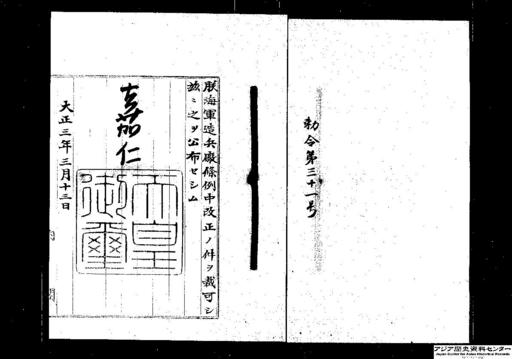 勅令第三十一号
朕海軍造兵廠條例中改正ノ件ヲ裁可シ
玆ニ之ヲ公布セシム
嘉仁
天皇御璽
大正三年三月十三日
内閣
アジア歴史資料センター
Japan Center for Asian Historical Records